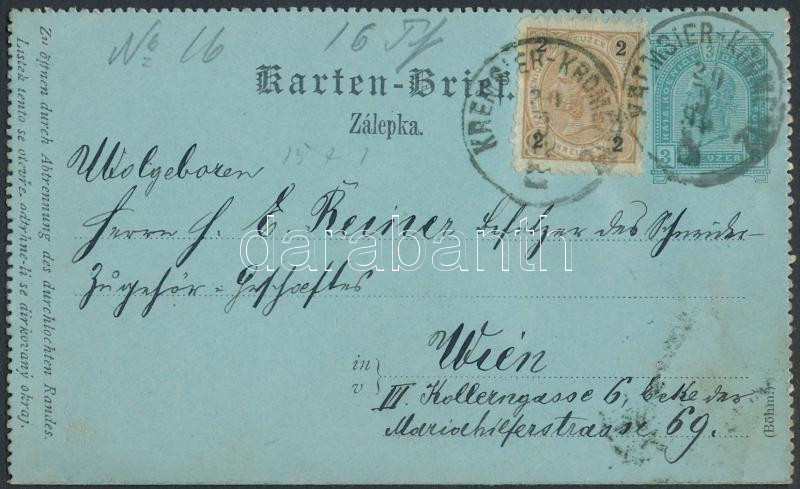 No 16
16 Pf
Karten-Brief.
Zálepka.
15 + 1
2 2
KREUZER
2 2
KREMSIER-KROMĚŘ
KREMSIER-KROMĚŘ
3
3 KREUZER
Wolgeboren
Herrn H. E. Reiner Besitzer des Schneider
Zugehör-Geschäftes
in
v
Wien
VI. Kollerngasse 6, Ecke der
Mariahilferstrasse 69.
(Böhm.)
Zu öffnen durch Abtrennung des durchlochten Randes.
Listek tento se otevře, odtrhne-li se dírkovaný okraj.
darabanth